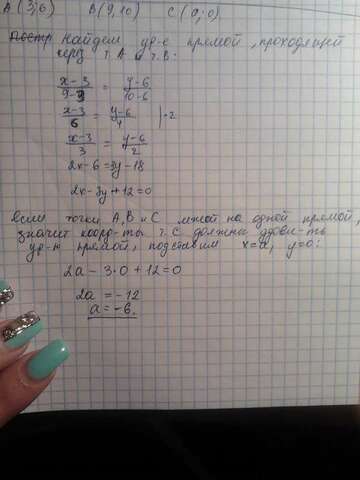 A(3;6) B(9,10) C(a;0)
Найдем ур-е прямой, проходящей
через т. A и т. B:
x-3/9-3 = y-6/10-6
x-3/6 = y-6/4 |·2
x-3/3 = y-6/2
2x-6=3y-18
2x-3y+12=0
Если точки A, B и C лежат на одной прямой,
значит коорд-ты т. C должны удовл-ть
ур-ю прямой, подставим x=a, y=0:
2a-3·0+12=0
2a=-12
a=-6.